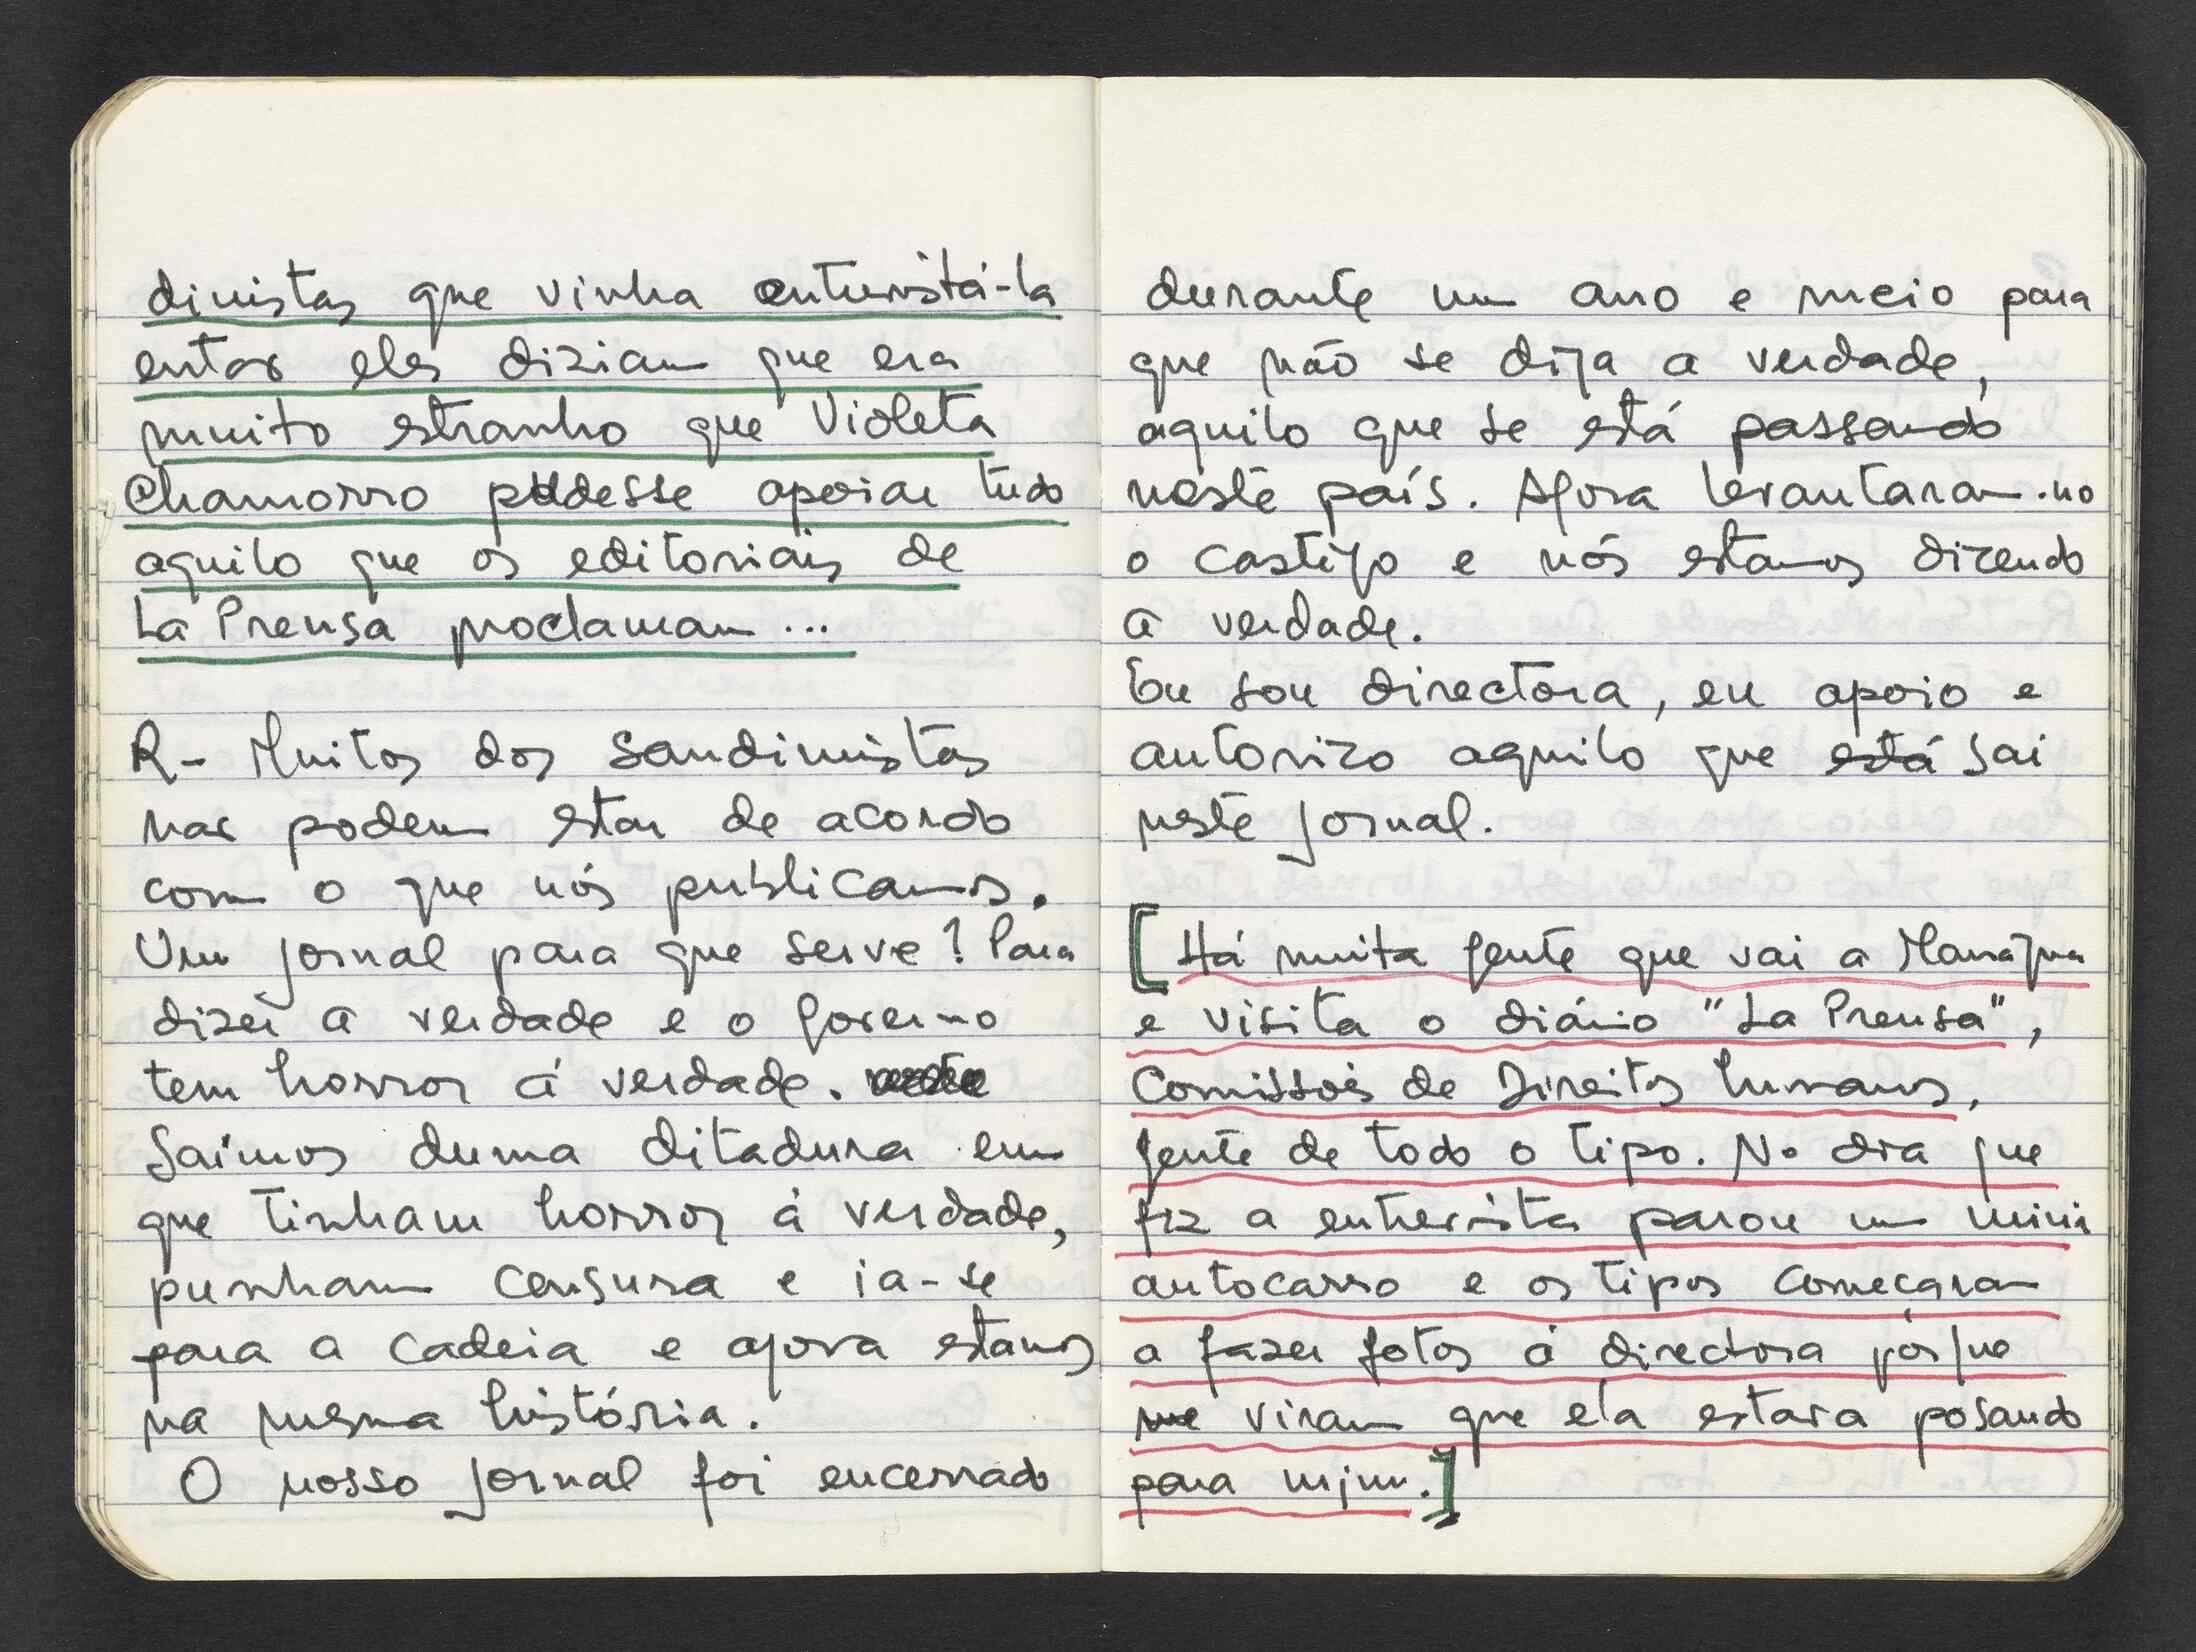 dinistas que vinha entrevistá-la
entao eles diziam que era
muito estranho que Violeta
Chamorro pudesse apoiar tudo
aquilo que os editoriais de
La Prensa proclamam...
R- Muitos dos sandinistas
nao podem estar de acordo
com o que nós publicamos.
Um jornal para que serve? Para
dizer a verdade e o governo
tem horror á verdade.
Saímos duma ditadura em
que tinham horror á verdade,
punham censura e ia-se
para a cadeia e agora estamos
na mesma história.
O nosso jornal foi encerrado
durante um ano e meio para
que não se diga a verdade,
aquilo que se está passando
neste país. Agora levantaram-no
o castigo e nós estamos dizendo
a verdade.
Eu sou directora, eu apoio e
autorizo aquilo que está sai
neste jornal.
[Há muita gente que vai a Managua
e visita o diário "La Prensa",
Comissões de Direitos humanos,
gente de todo o tipo. No dia que
fiz a entrevista parou um mini
autocarro e os tipos começaram
a fazer fotos á directora porque
me viram que ela estava posando
para mim.]